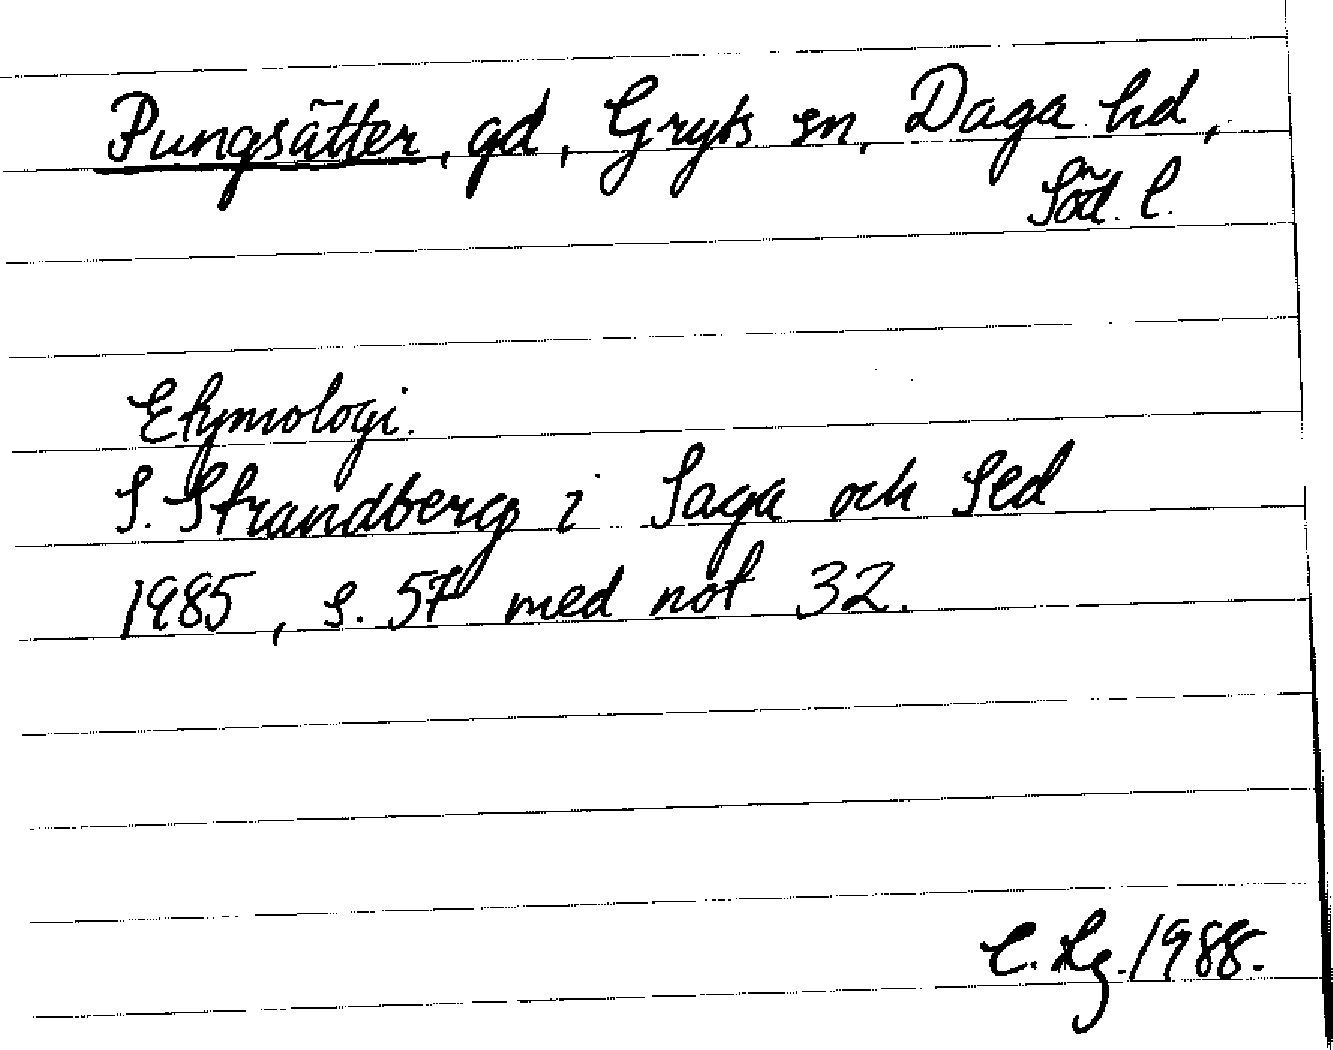 Pungsätter, gd, Gryts sn, Daga hd,
Söd. l.
Etymologi.
S. Strandberg i Saga och Sed
1985, s. 57 med not 32.
C. Lg. 1988.